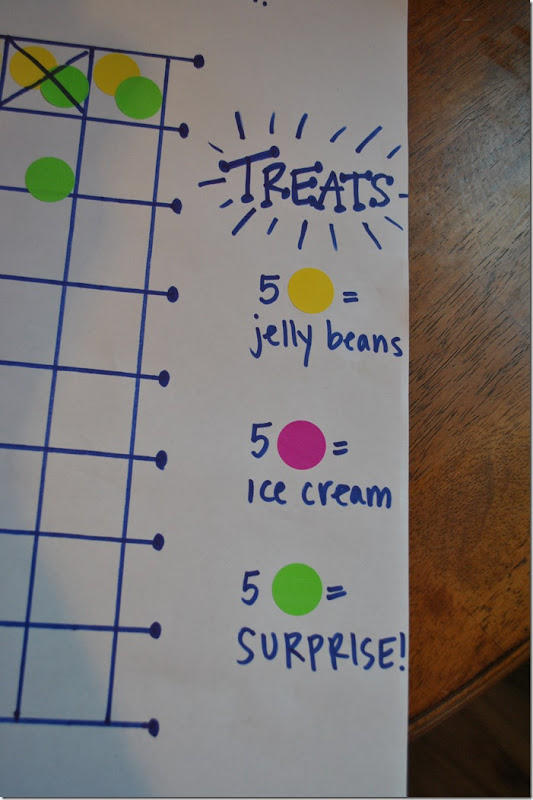 TREATS
5 =
jelly beans
5 =
ice cream
5 =
SURPRISE!